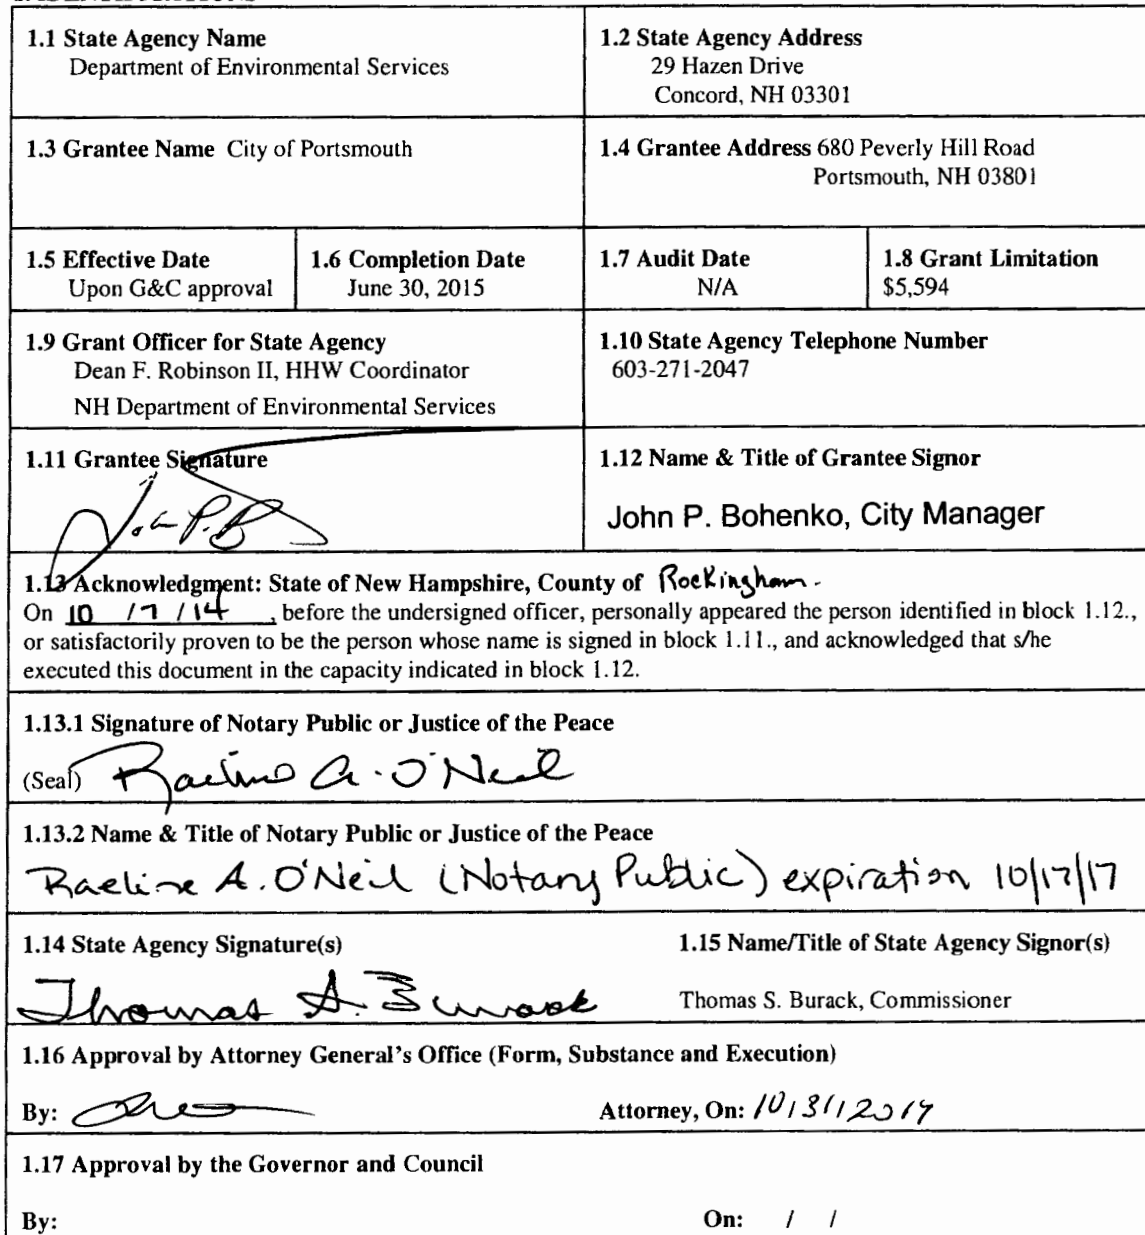 1.1 State Agency Name
Department of Environmental Services
1.2 State Agency Address
29 Hazen Drive
Concord, NH 03301
1.3 Grantee Name City of Portsmouth
1.4 Grantee Address 680 Peverly Hill Road
Portsmouth, NH 03801
1.5 Effective Date
Upon G&C approval
1.6 Completion Date
June 30, 2015
1.7 Audit Date
N/A
1.8 Grant Limitation
$5,594
1.9 Grant Officer for State Agency
Dean F. Robinson II, HHW Coordinator
NH Department of Environmental Services
1.10 State Agency Telephone Number
603-271-2047
1.11 Grantee Signature
John P. B
1.12 Name & Title of Grantee Signor
John P. Bohenko, City Manager
1.13 Acknowledgment: State of New Hampshire, County of Rockingham.
On 10 / 7 / 14, before the undersigned officer, personally appeared the person identified in block 1.12.,
or satisfactorily proven to be the person whose name is signed in block 1.11., and acknowledged that s/he
executed this document in the capacity indicated in block 1.12.
1.13.1 Signature of Notary Public or Justice of the Peace
(Seal) Raeline A. O'Neil
1.13.2 Name & Title of Notary Public or Justice of the Peace
Raeline A. O'Neil (Notary Public) expiration 10/17/17
1.14 State Agency Signature(s)
Thomas S. Burack
1.15 Name/Title of State Agency Signor(s)
Thomas S. Burack, Commissioner
1.16 Approval by Attorney General's Office (Form, Substance and Execution)
By:
Attorney, On: 10/31/2014
1.17 Approval by the Governor and Council
By:
On: / /